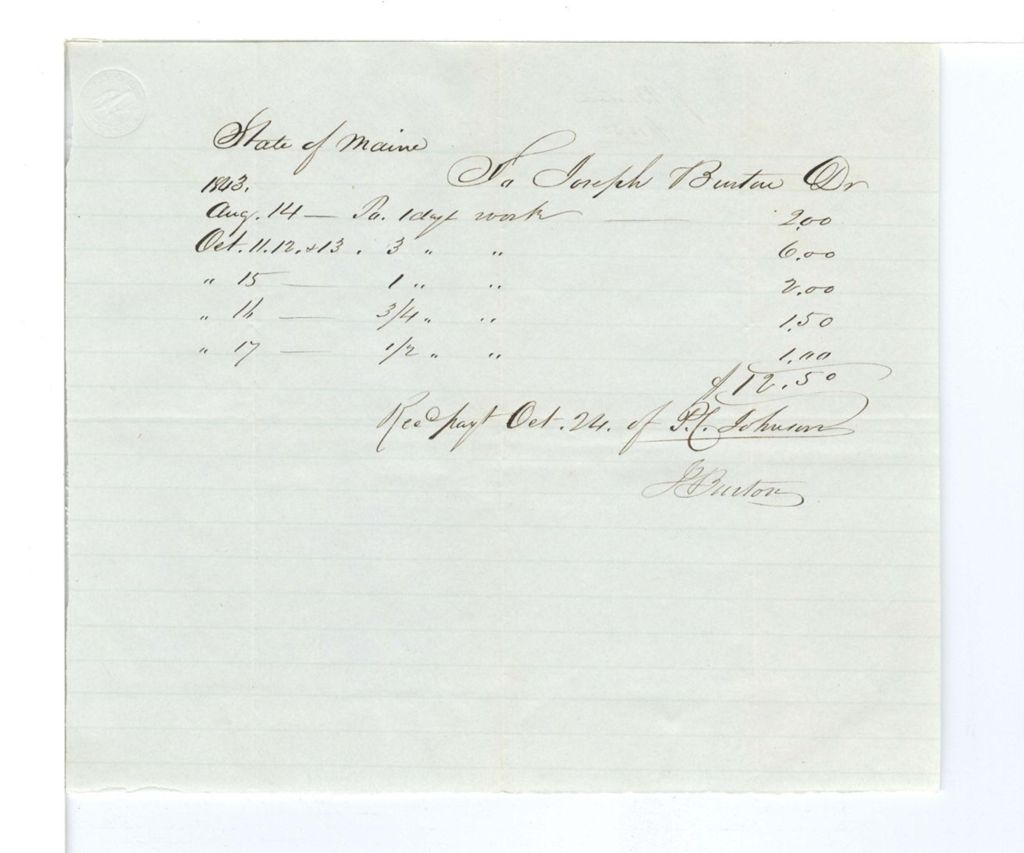 State of Maine
To Joseph Burton Dr
1863.
Aug. 14 — To. 1 days work — 2.00
Oct. 11. 12. & 13. 3 " " 6.00
" 15 — 1 " " 2.00
" 16 — 3/4 " " 1.50
" 17 — 1/2 " " 1.00
$12.50
Recd payt Oct. 24. of P.C. Johnson
J Burton